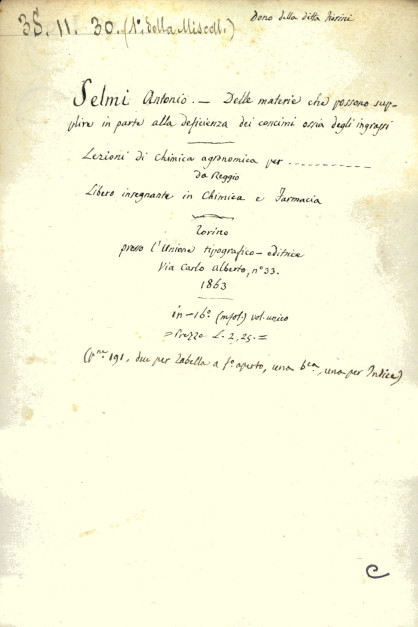 35. 11. 30. (1°. della Miscell.)
Dono della ditta
Selmi Antonio. — Delle materie che possono sup-
plire in parte alla deficienza dei concimi ossia degli ingrassi
Lezioni di Chimica agronomica per
da Reggio
Libero insegnante in Chimica e Farmacia
Torino
presso l'Unione tipografico-editrice
Via Carlo Alberto, n° 33.
1863
in-16° vol. unico
= Prezzo L. 2,25. =
(pne 191, due per Tabella a f° aperto, una bca, una per Indice)
C